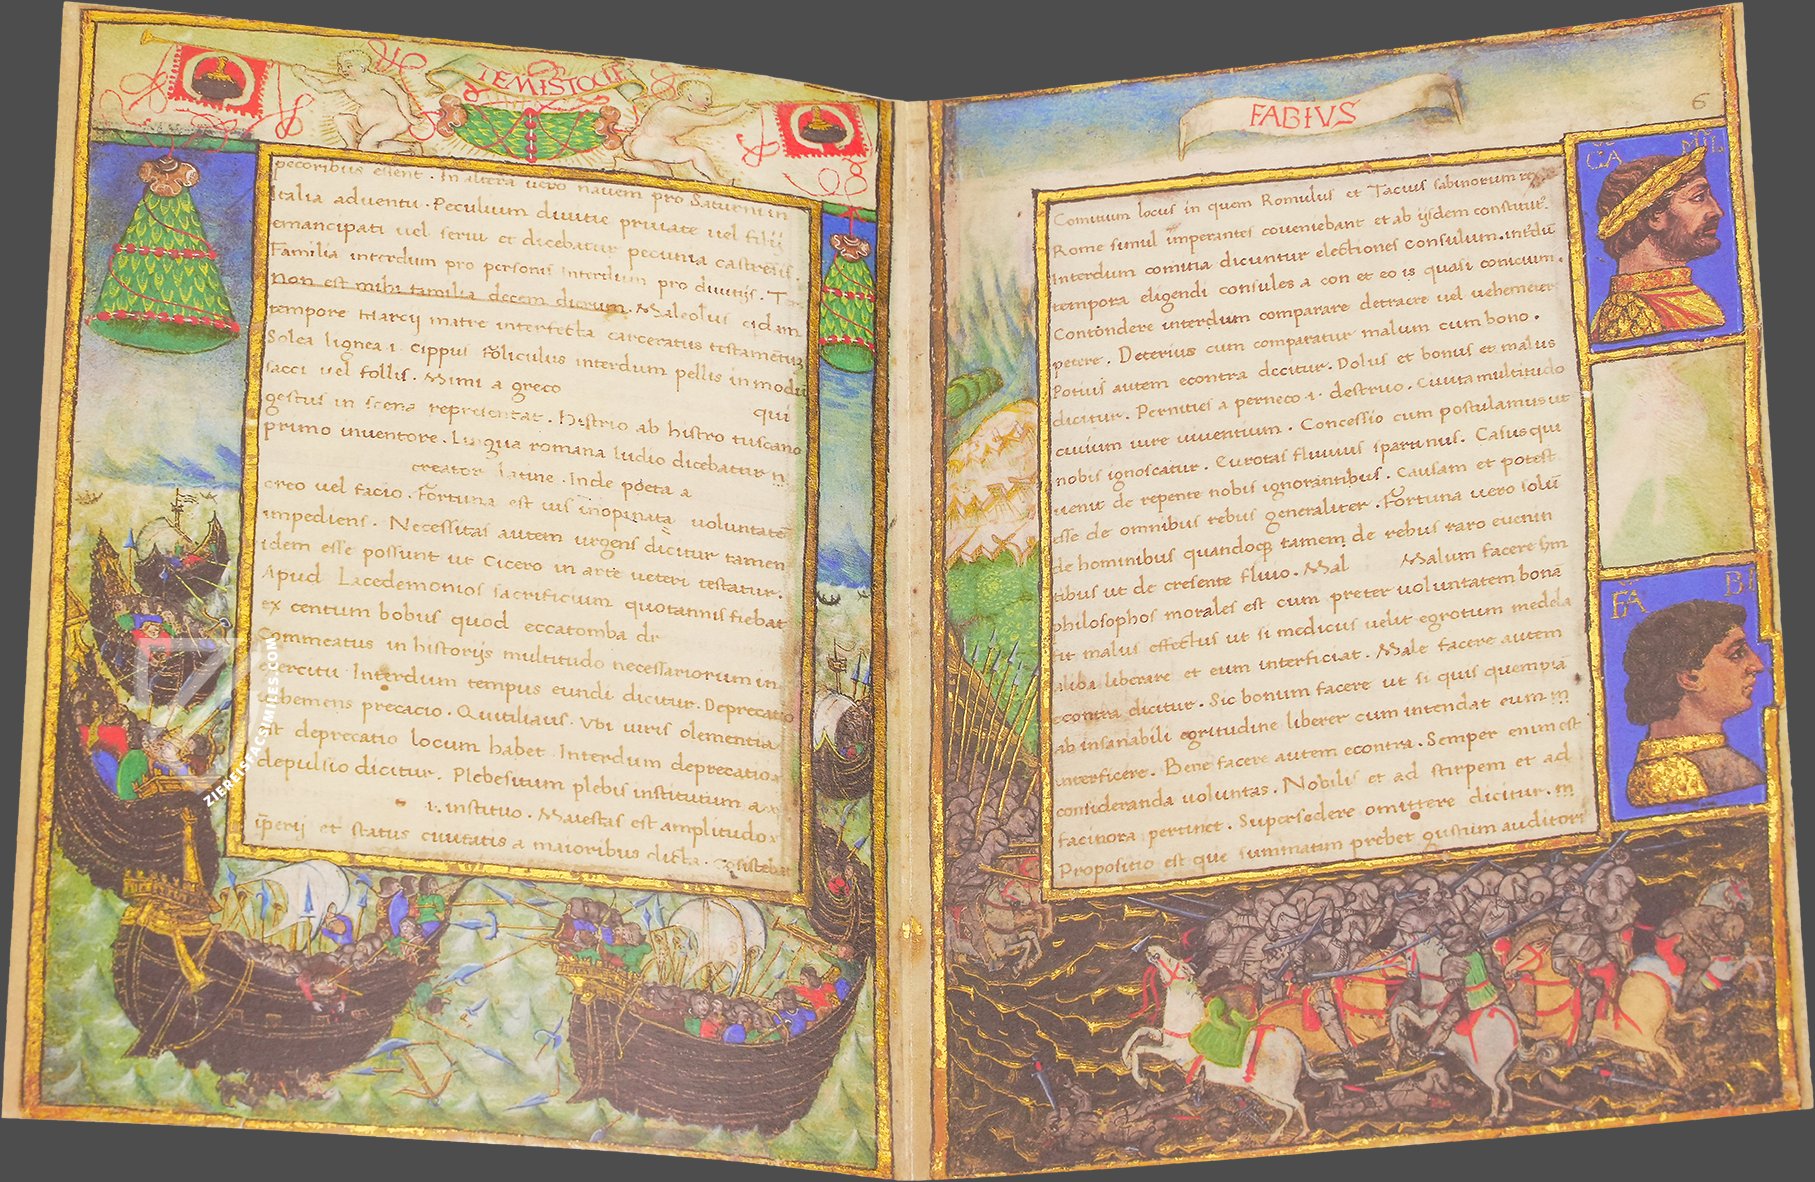 TEMISTOCLE
pecoribus essent. In altera uero nauem pro Saturni in
Italia aduentu. Peculium diuitie priuate uel filij
emancipati uel serui et dicebatur pecunia castrensis.
Familia interdum pro personis interdum pro diuitijs. Ter
non est mihi familia decem dierum. Maleolus cidam
tempore Marcij matre interfecta carceratus
Solea lignea .i. cippus foliculus interdum pellis in modū
sacci uel follis. Mimi a greco
qui
gestus in scena representat. Histrio ab histro tuscano
primo inuentore. Lingua romana ludio dicebatur
creator latine. Inde poeta a
creo uel facio. Fortuna est uis inopinata uoluntatē
impediens. Necessitas autem urgens dicitur tamen
idem esse possunt ut Cicero in arte ueteri testatur.
Apud Lacedemonios sacrificium quotannis fiebat
ex centum bobus quod eccatomba dr
Commeatus in historijs multitudo necessariorum in
exercitu. Interdum tempus eundi dicitur. Deprecatio
uehemens precacio. Quitilianus. Vbi iuris clementia
est deprecatio locum habet. Interdum deprecatio
depulsio dicitur. Plebesitum plebis institutum a
.i. instituo. Maiestas est amplitudo
īperij et status ciuitatis a maioribus dicta.
FABIVS
6
Comitium locus in quem Romulus et Tacius sabinorum rex
Rome simul imperantes coueniebant et ab ijsdem constitut.
Interdum comitia dicuntur electiones consulum. intdū
tempora eligendi consules a con et eo is quasi conicium.
Contondere interdum comparare detraere uel uehementer
petere. Deterius cum comparatur malum cum bono.
Potius autem econtra dicitur. Dolus et bonus et malus
dicitur. Pernities a perneco .i. destruo. Ciuita multitudo
ciuium iure uiuentium. Concessio cum postulamus ut
nobis ignoscatur. Eurotas fluuius spartanus. Casus qui
uenit de repente nobis ignorantibus. Causam et potest
esse de omnibus rebus generaliter. Fortuna uero solū
de hominibus quandoq tamem de rebus raro euenin
tibus ut de cresente fluio. Mal Malum facere
philosophos morales est cum preter uoluntatem bonā
fit malus effectus ut si medicus uelit egrotum medela
aliqa liberare et eum interficiat. Male facere autem
econtra dicitur. Sic bonum facere ut si quis quempiā
ab insanabili egritudine liberer cum intendat eum
interficere. Bene facere autem econtra. Semper enim est
consideranda uoluntas. Nobilis et ad stirpem et ad
facinora pertinet. Supersedere omittere dicitur.
Propositio est que summatim prebet gustum auditori
CA MIL
FA BI
ZIEREISFACSIMILES.COM